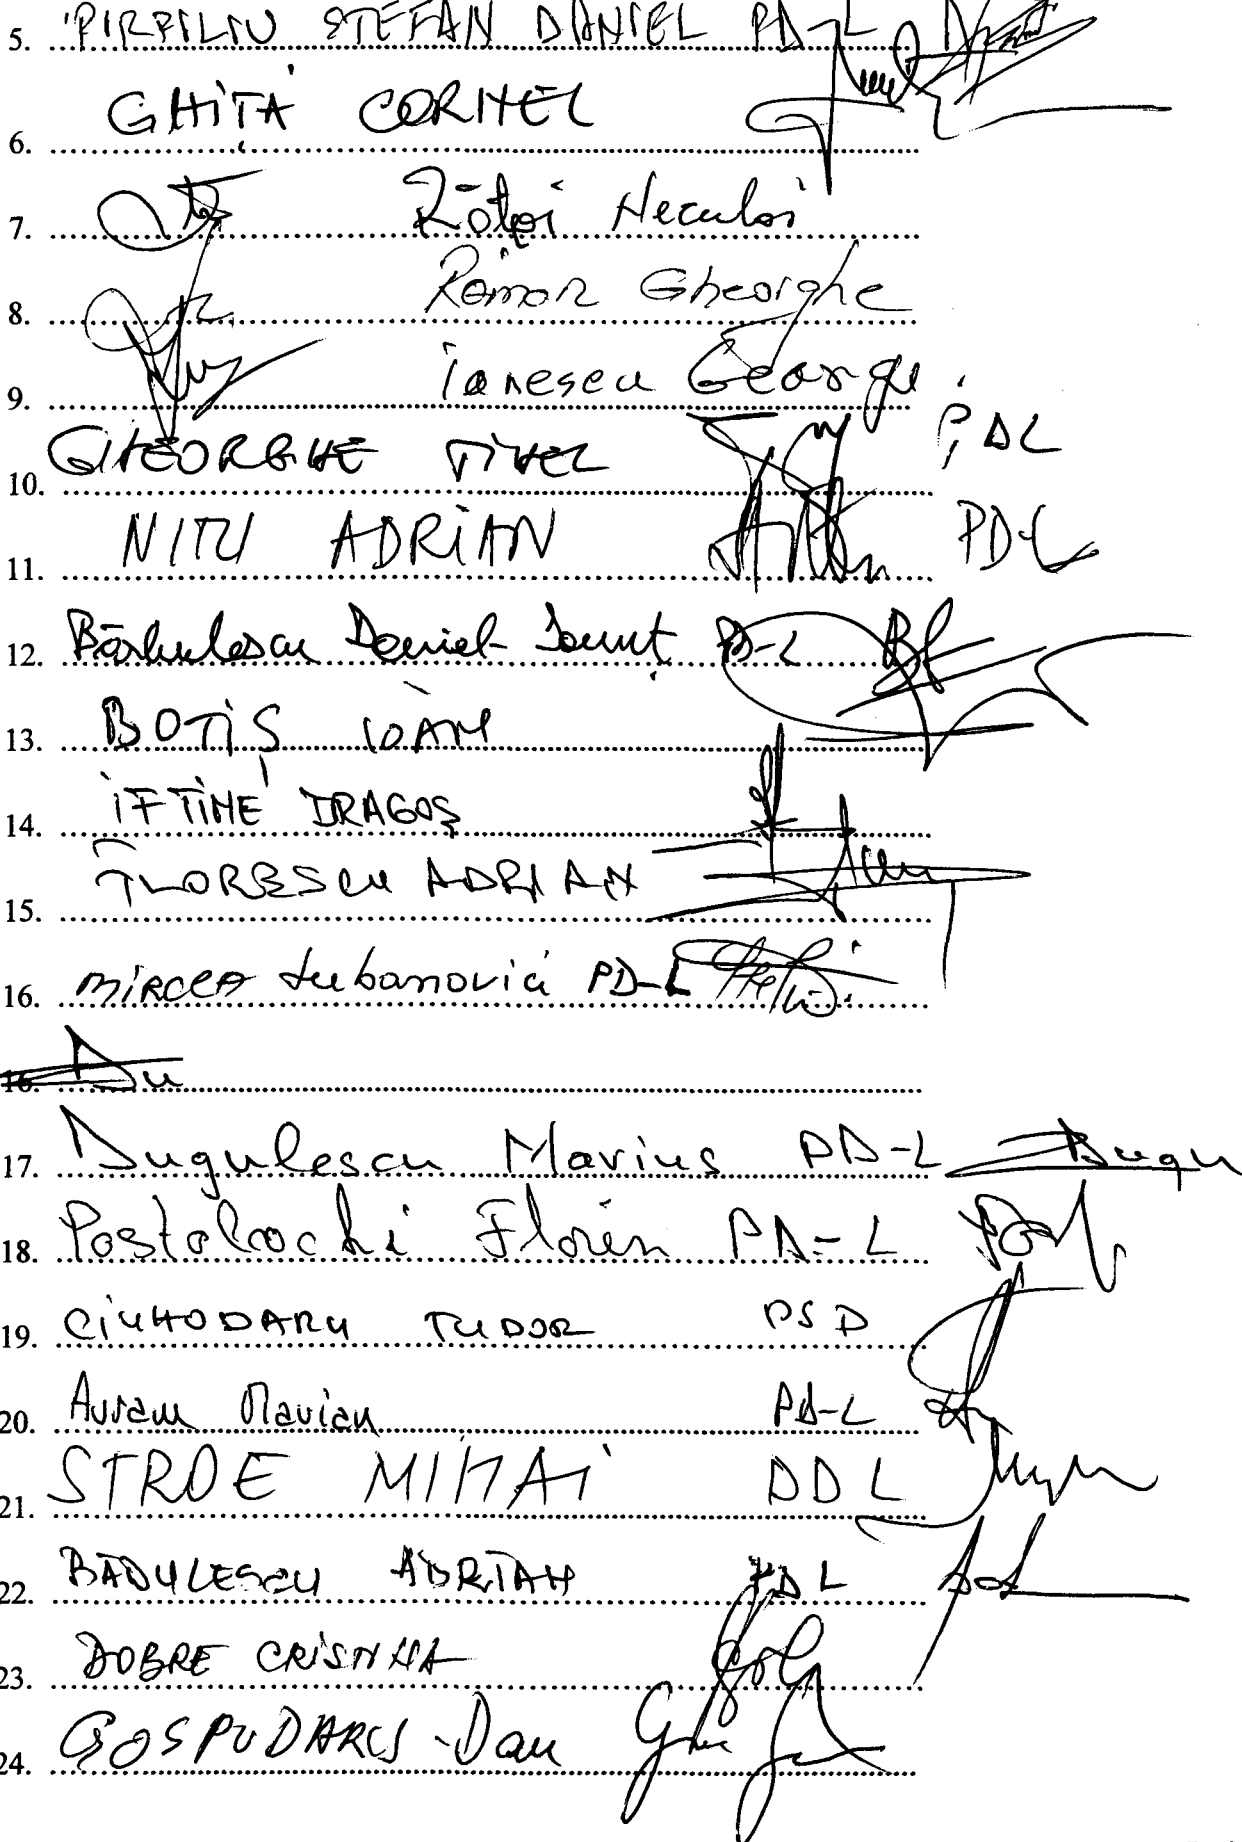 5. PIRPILIU STEFAN DANIEL PD-L
6. GHIȚĂ CORNEL
7. Rățoi Neculai
8. Roman Gheorghe
9. Ionescu George
10. GHEORGHE TINEL PDL
11. NITU ADRIAN PD-L
12. Bărbulescu Daniel-Ionuț PD-L
13. BOTIȘ IOAN
14. IFTIME DRAGOȘ
15. FLORESCU ADRIAN
16. MIRCEA Lubanovici PD-L
16. Du
17. Dugulescu Marius PD-L Dugu
18. Postolachi Florin PD-L
19. CIUHODARU TUDOR PSD
20. Avram Marian PD-L
21. STROE MIHAI PDL
22. BĂDULESCU ADRIAN PDL
23. DOBRE CRISTINA
24. GOSPODARU - Dan